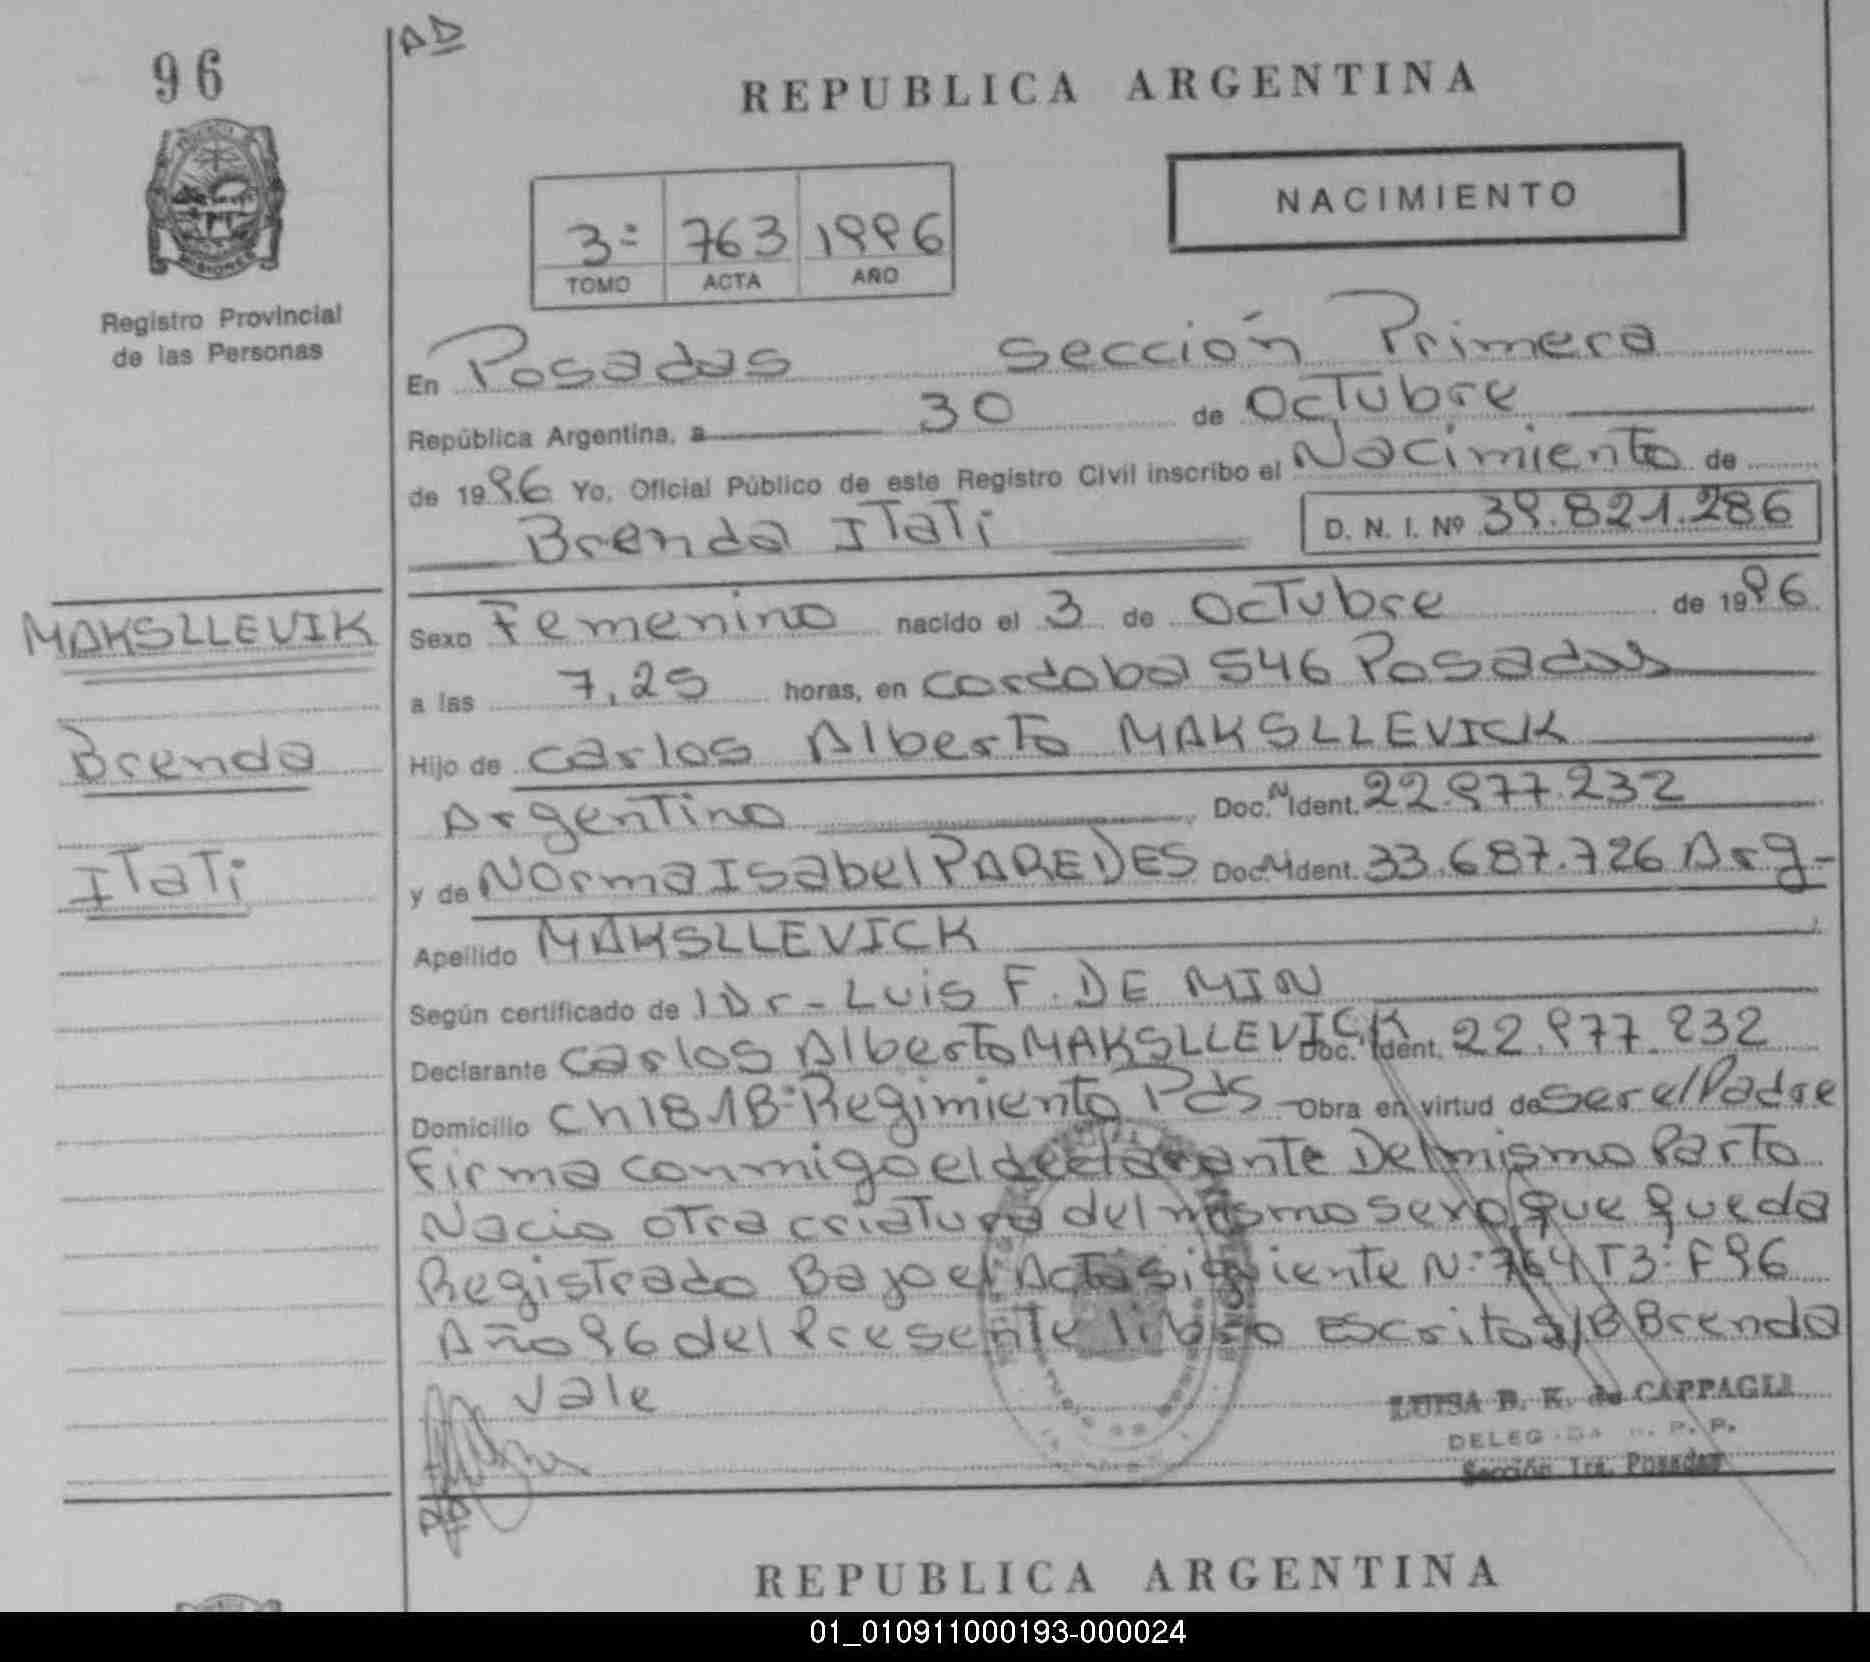 96
AD
REPUBLICA ARGENTINA
MISIONES
Registro Provincial
de las Personas
NACIMIENTO
3º 763 1996
TOMO ACTA AÑO
En Posadas Sección Primera
República Argentina, a 30 de Octubre
de 1996 Yo, Oficial Público de este Registro Civil inscribo el Nacimiento de
Brenda Itati D. N. I. Nº 39.821.286
MAKSLLEVIK
Brenda
Itati
Sexo Femenino nacido el 3 de Octubre de 1996
a las 7,25 horas, en Cordoba 546 Posadas
Hijo de Carlos Alberto MAKSLLEVICK
Argentino Doc. N Ident. 22.977.232
y de Norma Isabel PAREDES Doc. N Ident. 33.687.726 Arg-
Apellido MAKSLLEVICK
Según certificado de Dr- Luis F. DE MIN
Declarante Carlos Alberto MAKSLLEVICK Doc. Ident. 22.977.232
Domicilio Ch181 Bº Regimiento Pds Obra en virtud de ser el Padre
Firma conmigo el declarante Del mismo Parto
Nacio otra criatura del mismo sexo que queda
Registrado Bajo el Acta siguiente Nº 764 T3º F96
Año 96 del Presente libro Escrito Brenda
Vale
LUISA B. K. de CAPPAGLI
DELEGADA R. P. P.
Sección 1ra. Posadas
REPUBLICA ARGENTINA
01_010911000193-000024